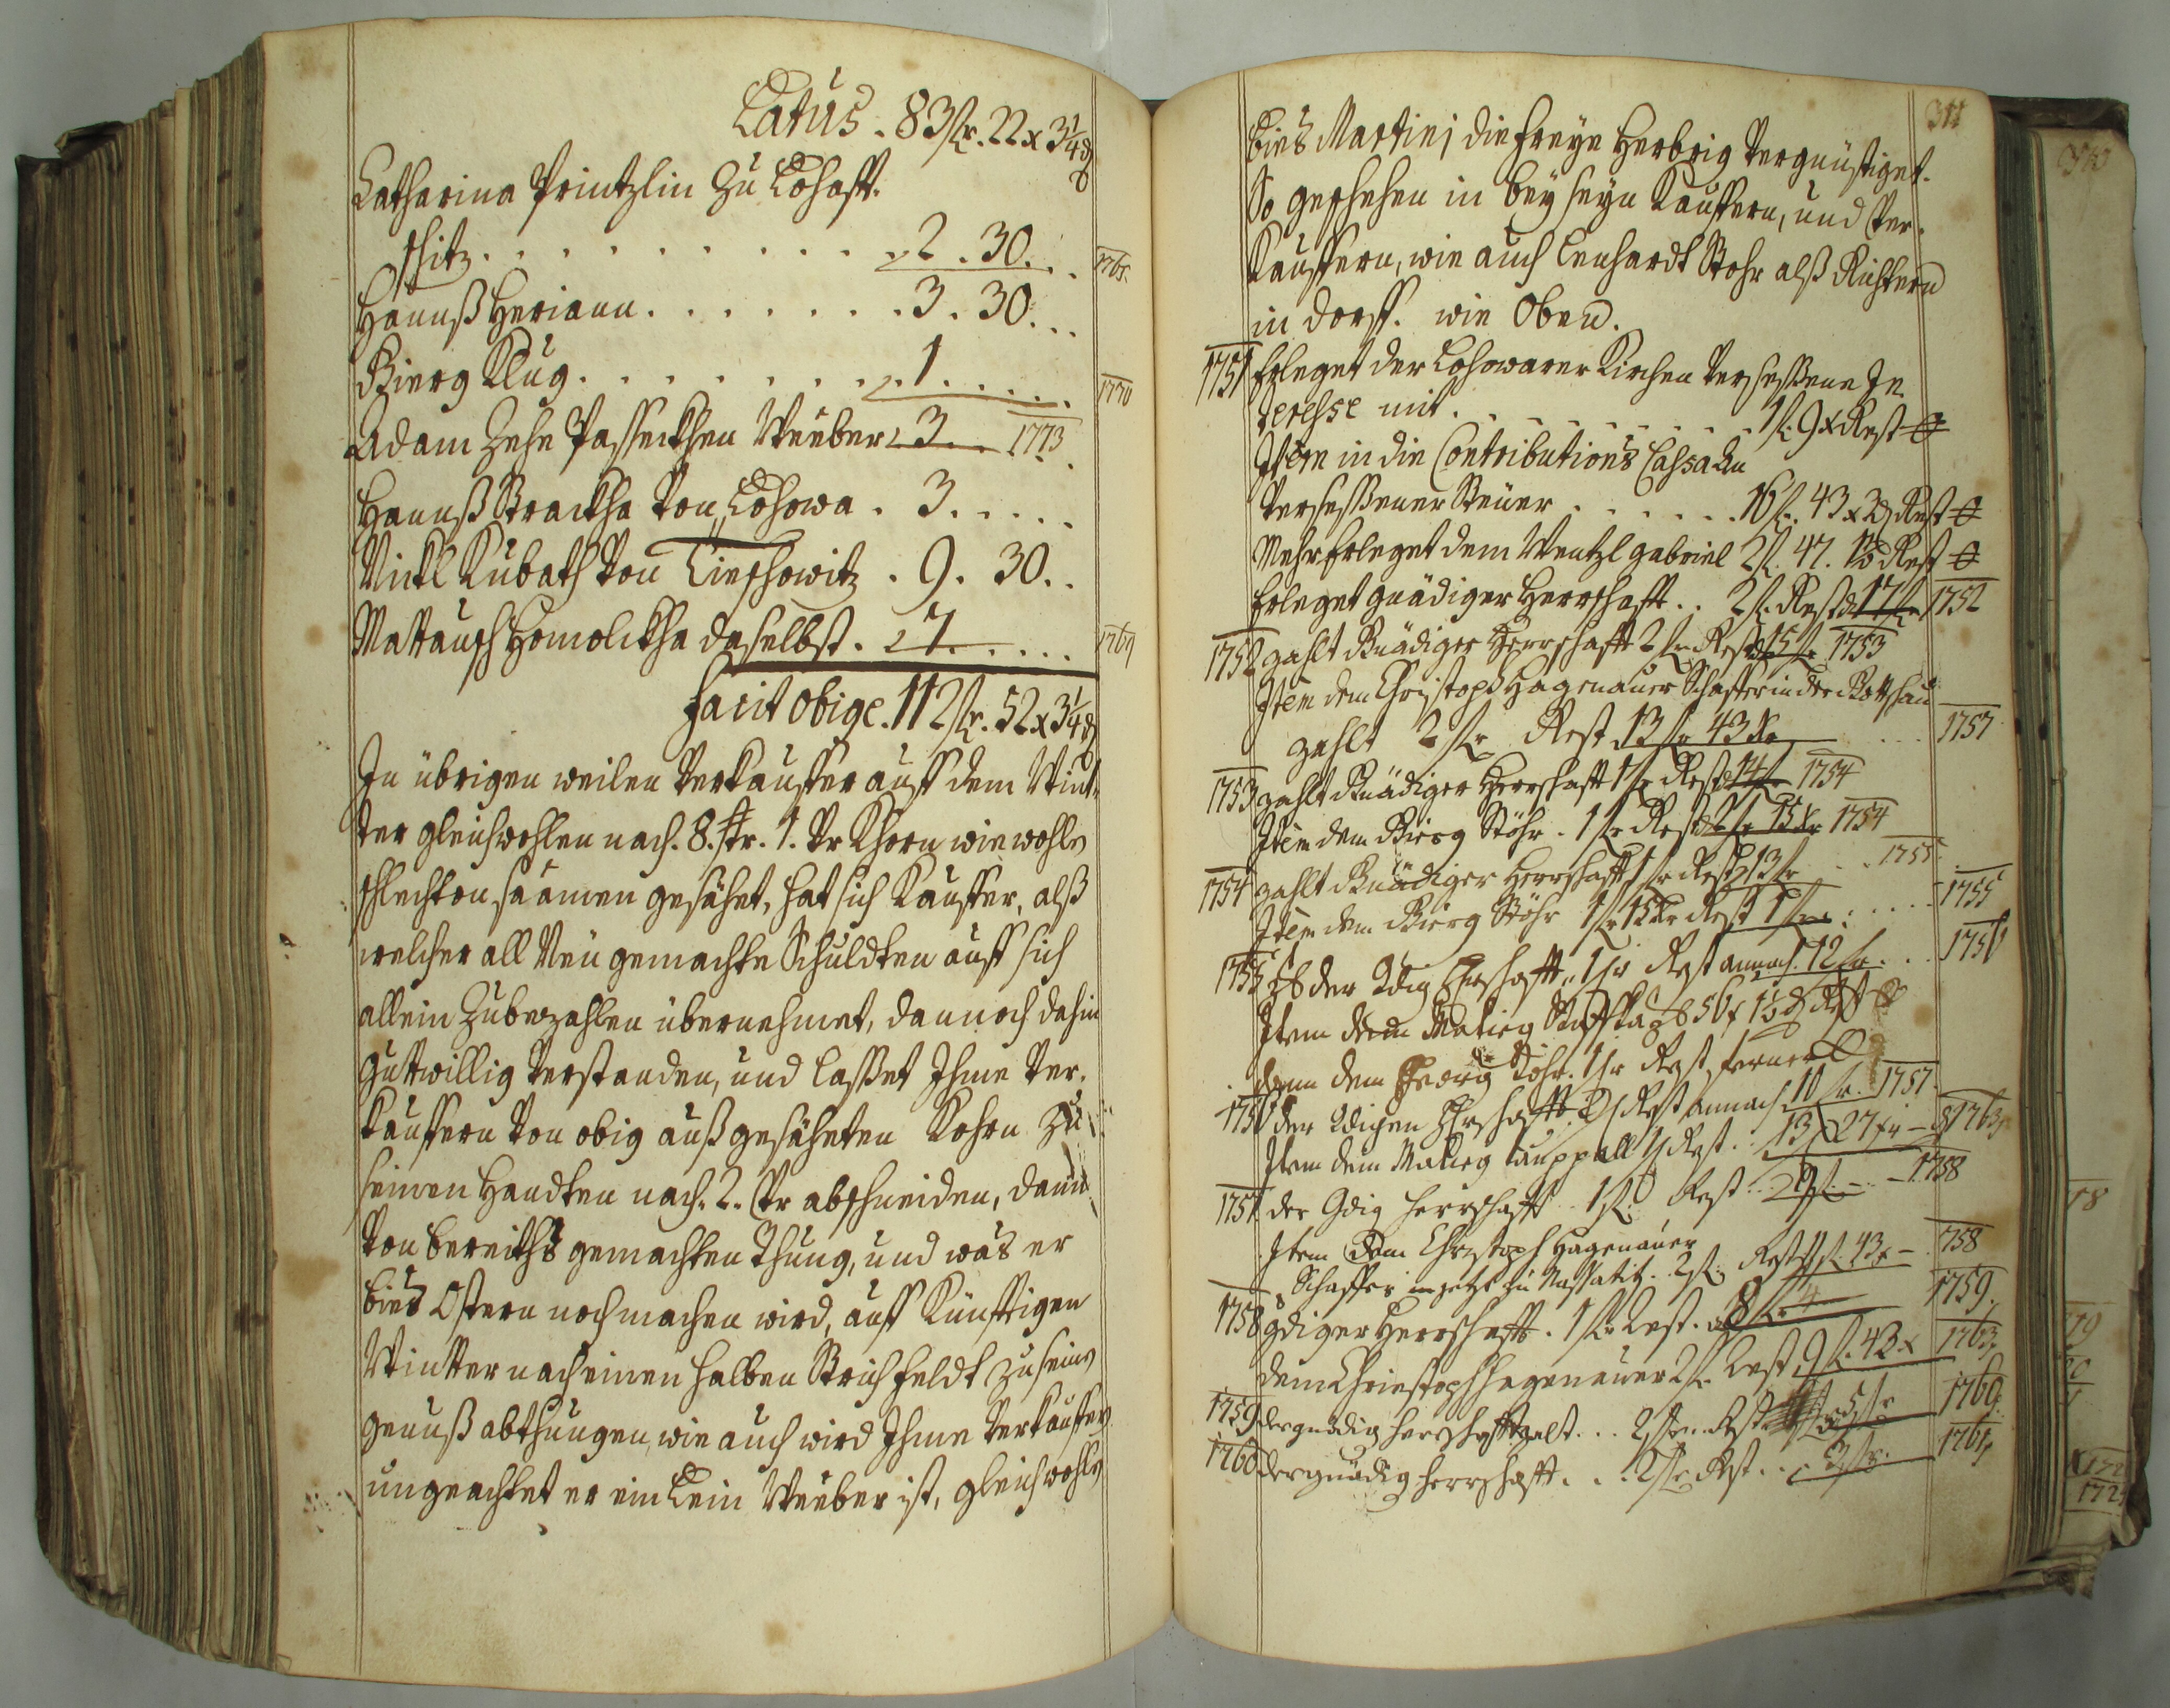 Latus . 83 fr. 22 x 3¼ d
Catharina Printzlin zu Lohoff.
schitz . . . . . . . . . 2 . 30 . . 1765.
Hannß Heriann . . . . . . . 3 . 30 . . .
Görg Klug . . . . . . . 1 . . . . 1770
Adam Zehe Passeckhen Weeber 3 . 1773
Hannß Strackha von Lohowa . 3 . . . . .
Nickl Kubath von Lieschowitz . 9 . 30 . .
Mattausch Homolckha daselbst . 7 . . . . . 1769
Facit obige . 112 fr. 52 x 3¼ d
In übrigen weilen Verkauffer auff dem Wint-
ter gleichwohlen nach . 8 . Str. 1 . Vr Khorn wie wohle
schlechten saamen gesähet, hat sich Kauffer, alß
welcher all Neu gemachte Schuldten auff sich
allein Zubezahlen übernehmet, dannoch dahin
guttwillig verstanden, und lasset Ihme Ver-
kauffern von obig außgesäheten Kohrn zu
seinen Handten nach . 2 . Vr abschneiden, dann
von bereiths gemachten Thung, und was er
bies Ostern noch machen wird, auff Künfftigen
Wintter nach einen halben Strich Feldt zu seine
genuß abthungen, wie auch wird Ihme Verkauffer
ungeachtet er ein Lein Weeber ist, gleichwohle
311
bies Martini die freye Herbrig vergnüstiget.
So geschehen in bey seyn Kauffern, und Ver-
Kauffern, wie auch Lenhardt Stohr alß Richtern
in dorff. wie Oben.
1751 Erleget der Lohowarer Kirchen versessene In
teresse mit . . . . . . . . 1 f. 9 x Rest 0
Item in die Contributions Cassa an
versessener Steuer . . . . . . 16 f. 43 x 3 d Rest 0
Mehr Erleget dem Wentzl Gabriel 2 f. 47 . Rest 0
Erleget gnädiger Herrschafft . . 2 f. Rest 17 fr 1752
1752 zahlt Gnädiger Herrschafft 2 fr Rest 15 fr 1753
Item dem Christoph Hagenauer Schaffer in der
zahlt 2 fr Rest 13 fr 43 xr . . . 1757
1753 zahlt Gnädiger Herrschafft 1 fr Rest 14 f 1754
Item dem Görg Stöhr . 1 fr Rest 2 fr 15 xr 1754
1754 zahlt Gnädiger Herrschafft 1 fr Rest 13 fr . . 1755
Item dem Görg Stöhr 1 fr 15 xr Rest 1 fr . . . . 1755
1755 der Gdig Hrschafft 1 fr Rest annach 12 fr . . 1756
Item dem Matieg 56 x 1½ d Rest 0
dem Georg Stöhr . 1 fr Rest ferner 0
1756 der Gdigen Hrschafft 2 f Rest annach 10 fr. 1757
Item dem Matieg 1 f Rest . . 13 f 27 xr – 1763
1757 der Gdig Herrschafft . 1 f. Rest . . 9 f. – . – 1758
Item dem Christoph Hagenauer
Schaffer jetzt zu . 2 f. Rest 11 f. 43 x – 1758
1758 gdiger Herrschafft . 1 fr Rest . 8 fr 1759.
dem Christoph Hagenauer 2 fr Rest 9 f. 43 x 1763
1759 der gnädig herrschafft zalt . . . 2 fr Rest 5 fr 1760
1760 der gnädig herrschafft . . . 2 fr Rest . . 3 fr. 1761